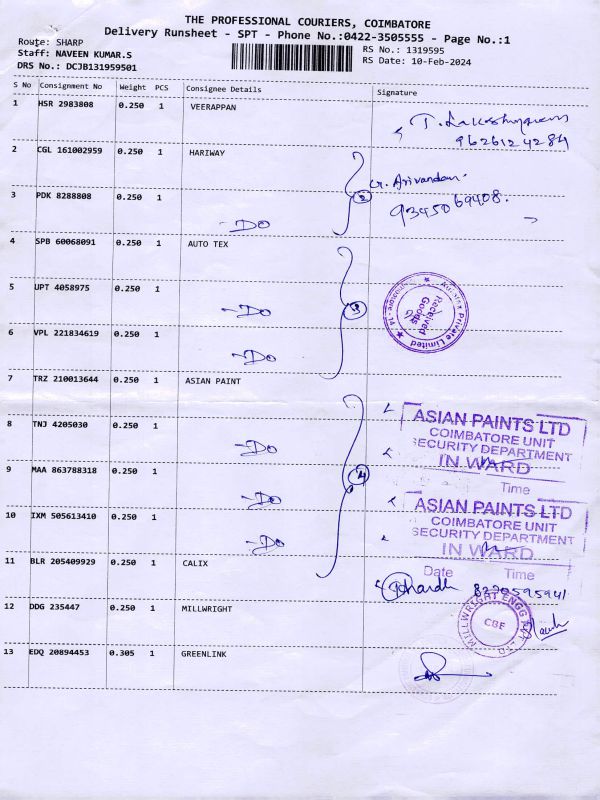 THE PROFESSIONAL COURIERS, COIMBATORE
Delivery Runsheet - SPT - Phone No.:0422-3505555 - Page No.:1
Route: SHARP
RS No.: 1319595
Staff: NAVEEN KUMAR.S
RS Date: 10-Feb-2024
DRS No.: DCJB131959501
S No Consignment No Weight PCS Consignee Details Signature
1 HSR 2983808 0.250 1 VEERAPPAN
9626124284
2 CGL 161002959 0.250 1 HARIWAY
G. Arivandan.
3 PDK 8288808 0.250 1 -DO
2
9345069408.
4 SPB 60068091 0.250 1 AUTO TEX
5 UPT 4058975 0.250 1 -DO
3
Private Limited
Received
Goods
6 VPL 221834619 0.250 1 -DO
7 TRZ 210013644 0.250 1 ASIAN PAINT
8 TNJ 4205030 0.250 1 -DO
ASIAN PAINTS LTD
COIMBATORE UNIT
SECURITY DEPARTMENT
IN WARD
Time
9 MAA 863788318 0.250 1 -DO
4
10 IXM 505613410 0.250 1 -DO
ASIAN PAINTS LTD
COIMBATORE UNIT
SECURITY DEPARTMENT
IN WARD
Date Time
11 BLR 205409929 0.250 1 CALIX
8220595941
12 DDG 235447 0.250 1 MILLWRIGHT
MILLWRIGHT ENGG
CBE
13 EDQ 20894453 0.305 1 GREENLINK